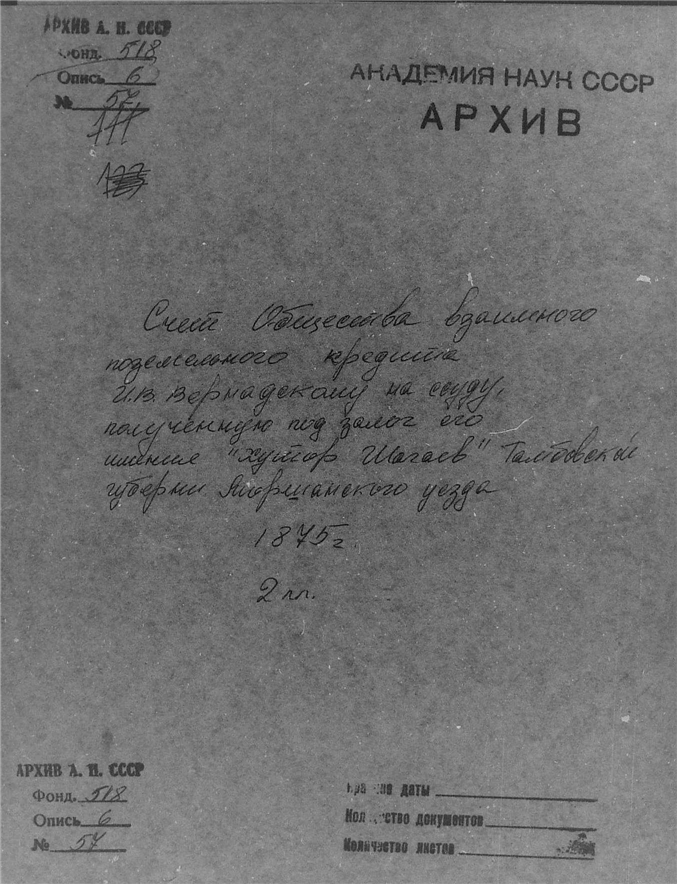 АРХИВ А. Н. СССР
Фонд. 518
Опись 6
№ 57
111
АКАДЕМИЯ НАУК СССР
АРХИВ
Счет Общества взаимного
поземельного кредита
И.В. Вернадскому на ссуду,
полученную под залог его
имения "хутор Шагаев" Тамбовской
губерни Моршанского уезда
1875 г.
2 лл.
АРХИВ А. Н. СССР
Фонд. 518
Опись 6
№ 57
Крайние даты
Количество документов
Количество листов